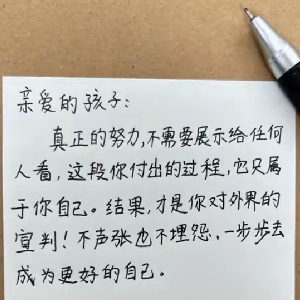 亲爱的孩子:
真正的努力,不需要展示给任何
人看,这段你付出的过程,它只属
于你自己。结果,才是你对外界的
宣判!不声张也不埋怨,一步步去
成为更好的自己。